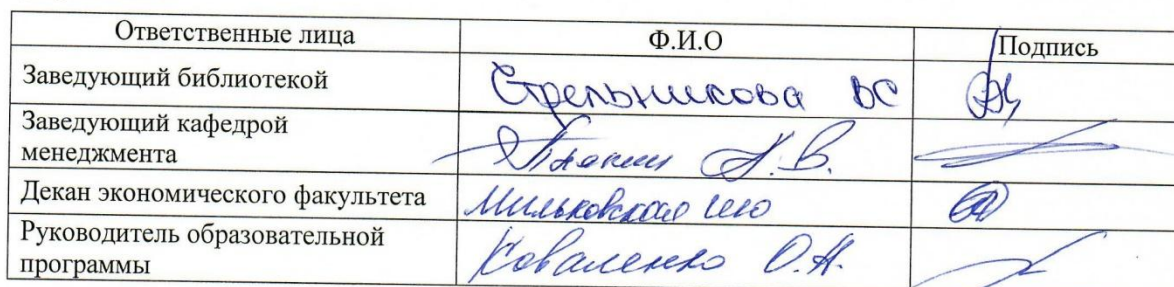 Ответственные лица Ф.И.О Подпись
Заведующий библиотекой Стрельникова ВС
Заведующий кафедрой
менеджмента
Декан экономического факультета Мильковская
Руководитель образовательной
программы Коваленко О.Н.